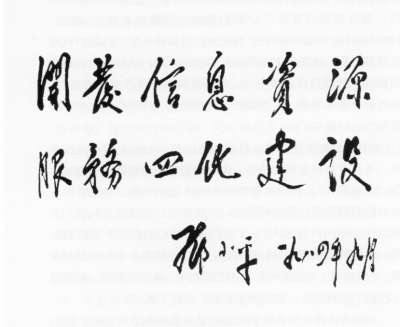 開發信息資源
服務四化建設
邓小平 一九八四年九月